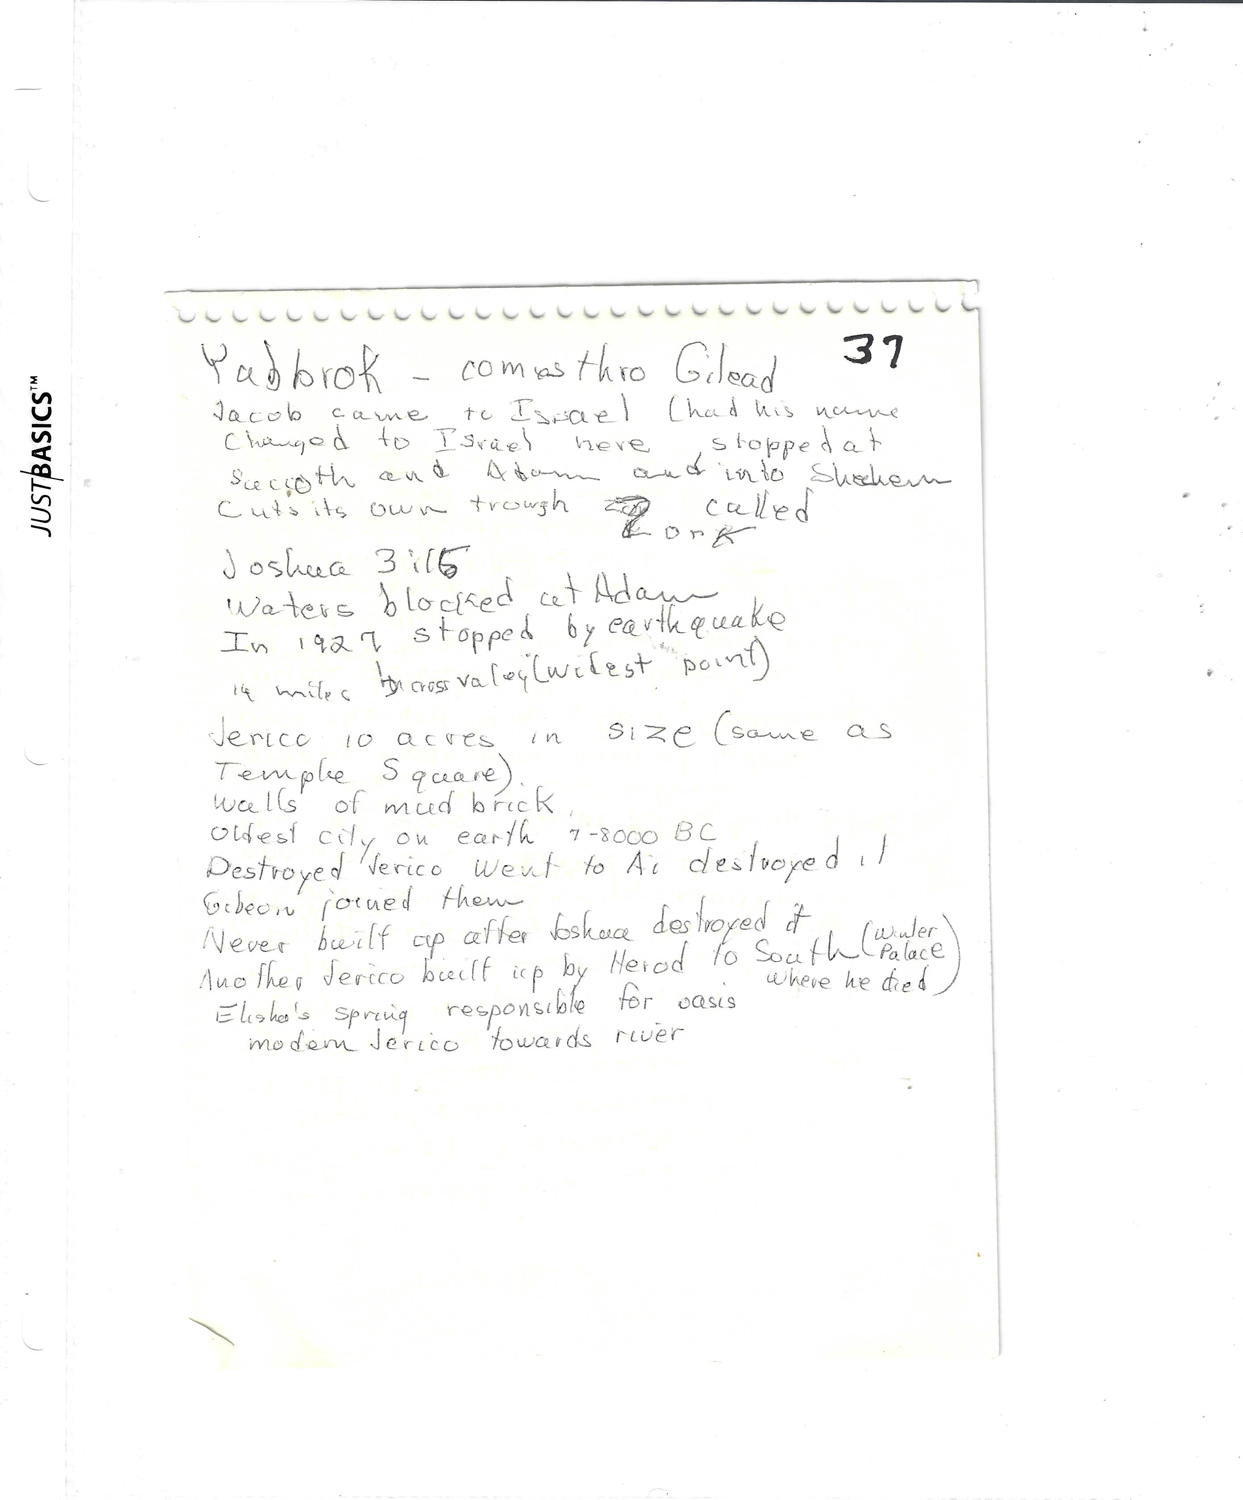 JUSTBASICS™
37
Yadbrok - comes thro Gilead
Jacob came to Israel (had his name
changed to Israel here, stopped at
Succoth and Adam and into Shechem
Cuts its own trough called
Zork
Joshua 3:16
Waters blocked at Adam
In 1927 stopped by earthquake
14 miles across valey (widest point)
Jerico 10 acres in size (same as
Temple Square).
Walls of mud brick.
Oldest city on earth 7-8000 BC
Destroyed Jerico Went to Ai destroyed it
Gibeon joined them
Never built up after Joshua destroyed it
Another Jerico built up by Herod to South (Winter
Palace
where he died)
Elisha's spring responsible for oasis
modern Jerico towards river